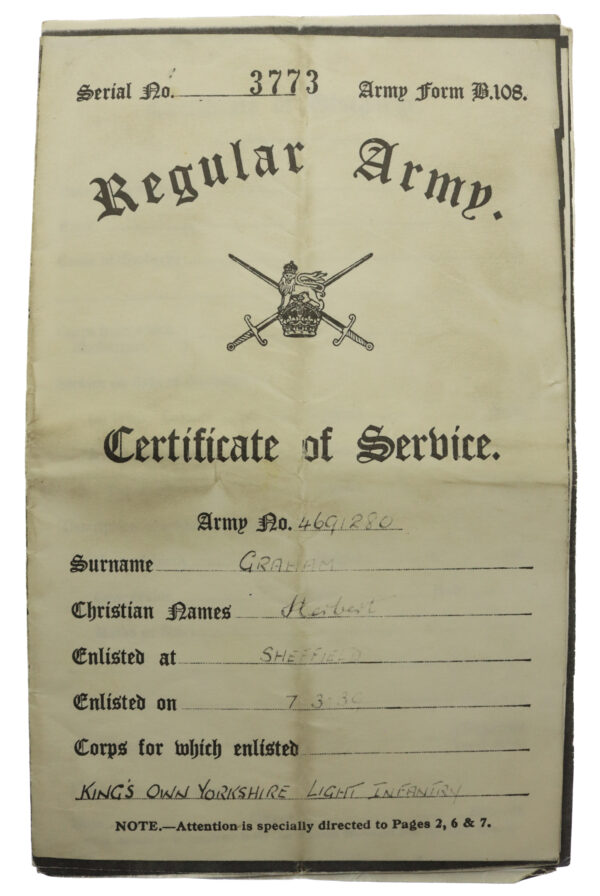 Serial No. 3773 Army Form B.108.
Regular Army.
Certificate of Service.
Army No. 4691280
Surname GRAHAM
Christian Names Herbert
Enlisted at SHEFFIELD
Enlisted on 7 3 39
Corps for which enlisted
KING'S OWN YORKSHIRE LIGHT INFANTRY
NOTE.—Attention is specially directed to Pages 2, 6 & 7.